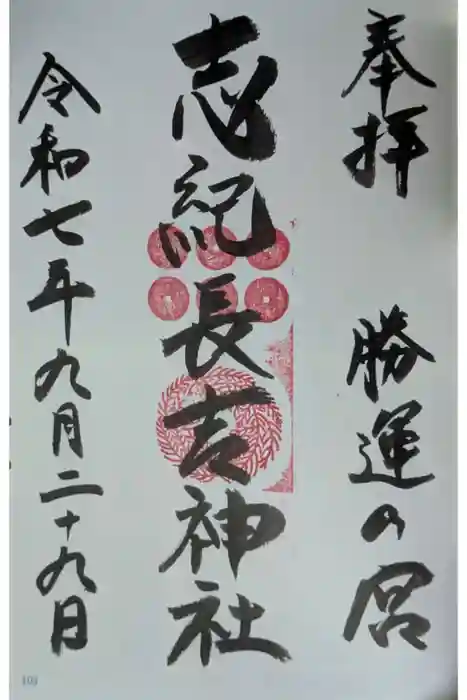 奉拝 勝運の宮
志紀長吉神社
令和七年九月二十九日